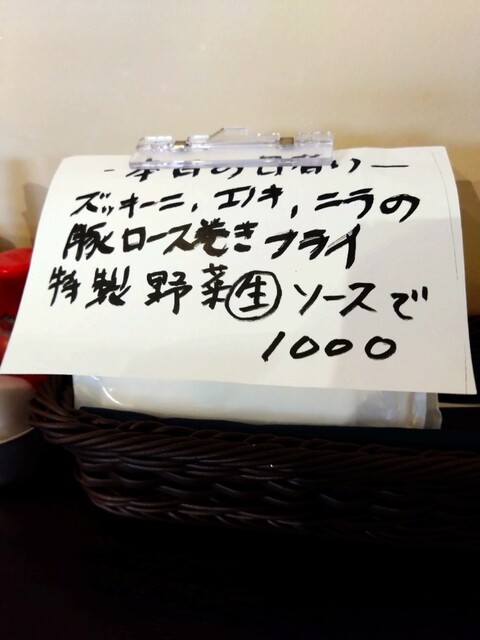 -本日の日替り-
ズッキーニ,エノキ,ニラの
豚ロース巻きフライ
特製野菜㊤ソースで
1000